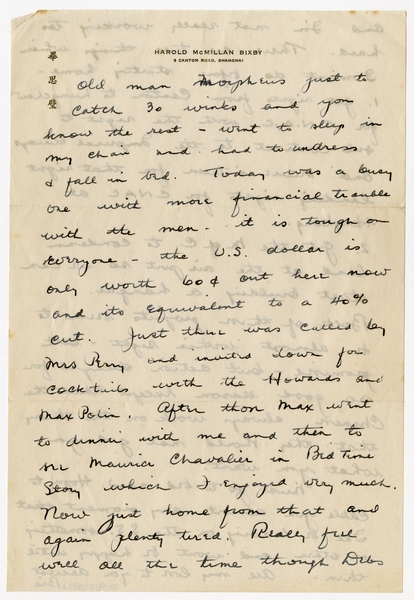 HAROLD McMILLAN BIXBY
3 CANTON ROAD, SHANGHAI
畢
思
璧
Old man Morpheus just to
catch 30 winks and you
know the rest - went to sleep in
my chair and had to undress
& fall in bed. Today was a busy
one with more financial trouble
with the men - it is tough on
everyone - the U.S. dollar is
only worth 60¢ out here now
and its equivalent to a 40%
cut. Just then was called by
Mrs Perry and invited down for
cocktails with the Howards and
Max Polin. After that Max went
to dinner with me and then to
see Maurice Chavalier in Bed Time
Story which I enjoyed very much.
Now just home from that and
again plenty tired. Really feel
well all the time though Debs